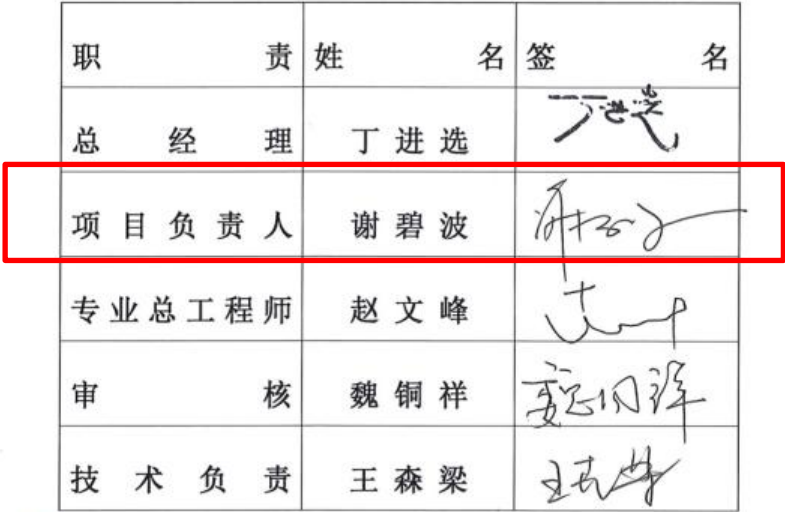 职责 姓名 签名
总经理 丁进选 丁进选
项目负责人 谢碧波
专业总工程师 赵文峰
审核 魏铜祥 魏铜祥
技术负责 王森梁